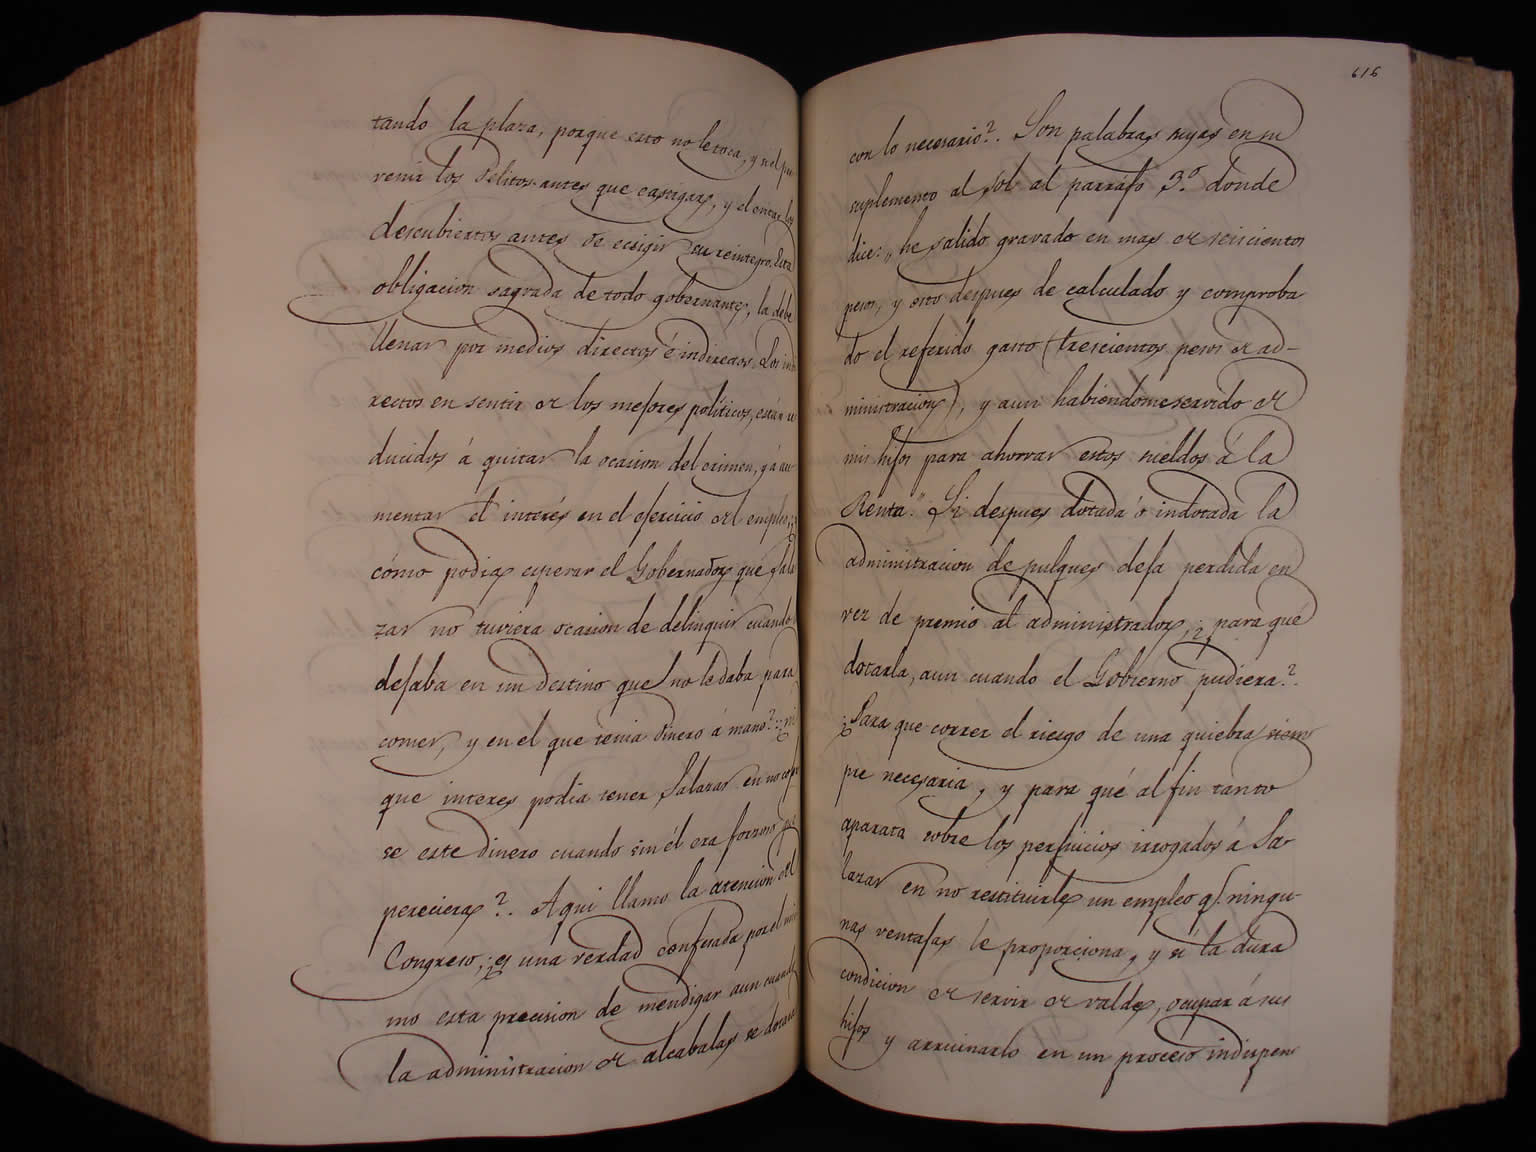 tando la plaza, porque esto no le toca, y si el pre
venir los delitos antes que castigarx, y el evitar los
descubiertos antes de ecsigir su reintegro. Esta
obligacion sagrada de todo gobernante, la debe
llenar por medios directos é indirectos. Los indi
rectos en sentir de los mejores políticos, están re
ducidos á quitar la ocasion del crimen, y á au
mentar el interés en el ejercicio del empleo; ¿
cómo podia esperar el Gobernador que Sala
zar no tuviera ocasion de delinquir cuando
dejaba en un destino que no le daba para
comer, y en el que tenia dinero á mano? ¿ni
que interes podia tener Salazar en no coger
se este dinero cuando sin él era forzoso que
pereciera?. Aqui llamo la atencion del
Congreso, ¿es una verdad confesada por el mis
mo esta precision de mendigar aun cuando
la administracion de alcabalas se dotara
616
con lo necesario?. Son palabras suyas en su
suplemento al Sol al parráfo 3.º donde
dice: „he salido gravado en mas de seiscientos
pesos, y esto despues de calculado y comproba
do el referido gasto (trescientos pesos de ad-
ministracion), y aun habiendome servido de
mis hijos para ahorrar estos sueldos á la
Renta." Si despues dotada ó indotada la
administracion de pulques deja perdida en
vez de premio al administrador, ¿para qué
dotarla, aun cuando el Gobierno pudiera?.
¿Para que correr el riesgo de una quiebra siem
pre necesaria, y para qué al fin tanto
aparata sobre los perjuicios irrogados á Sa-
lazar en no restituirle un empleo q.e ningu-
nas ventajas le proporciona, y sí la dura
condicion de servir de valde, ocupar á sus
hijos y arruinarlo en un proceso indispen